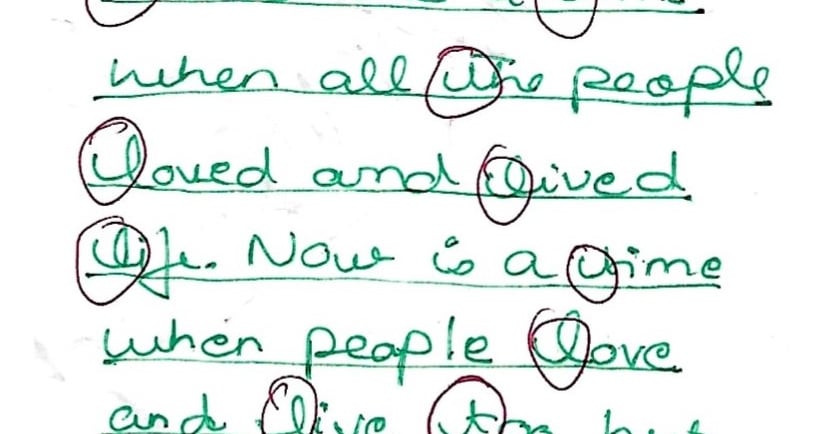 when all the people
loved and lived
life. Now is a time
when people love
and live